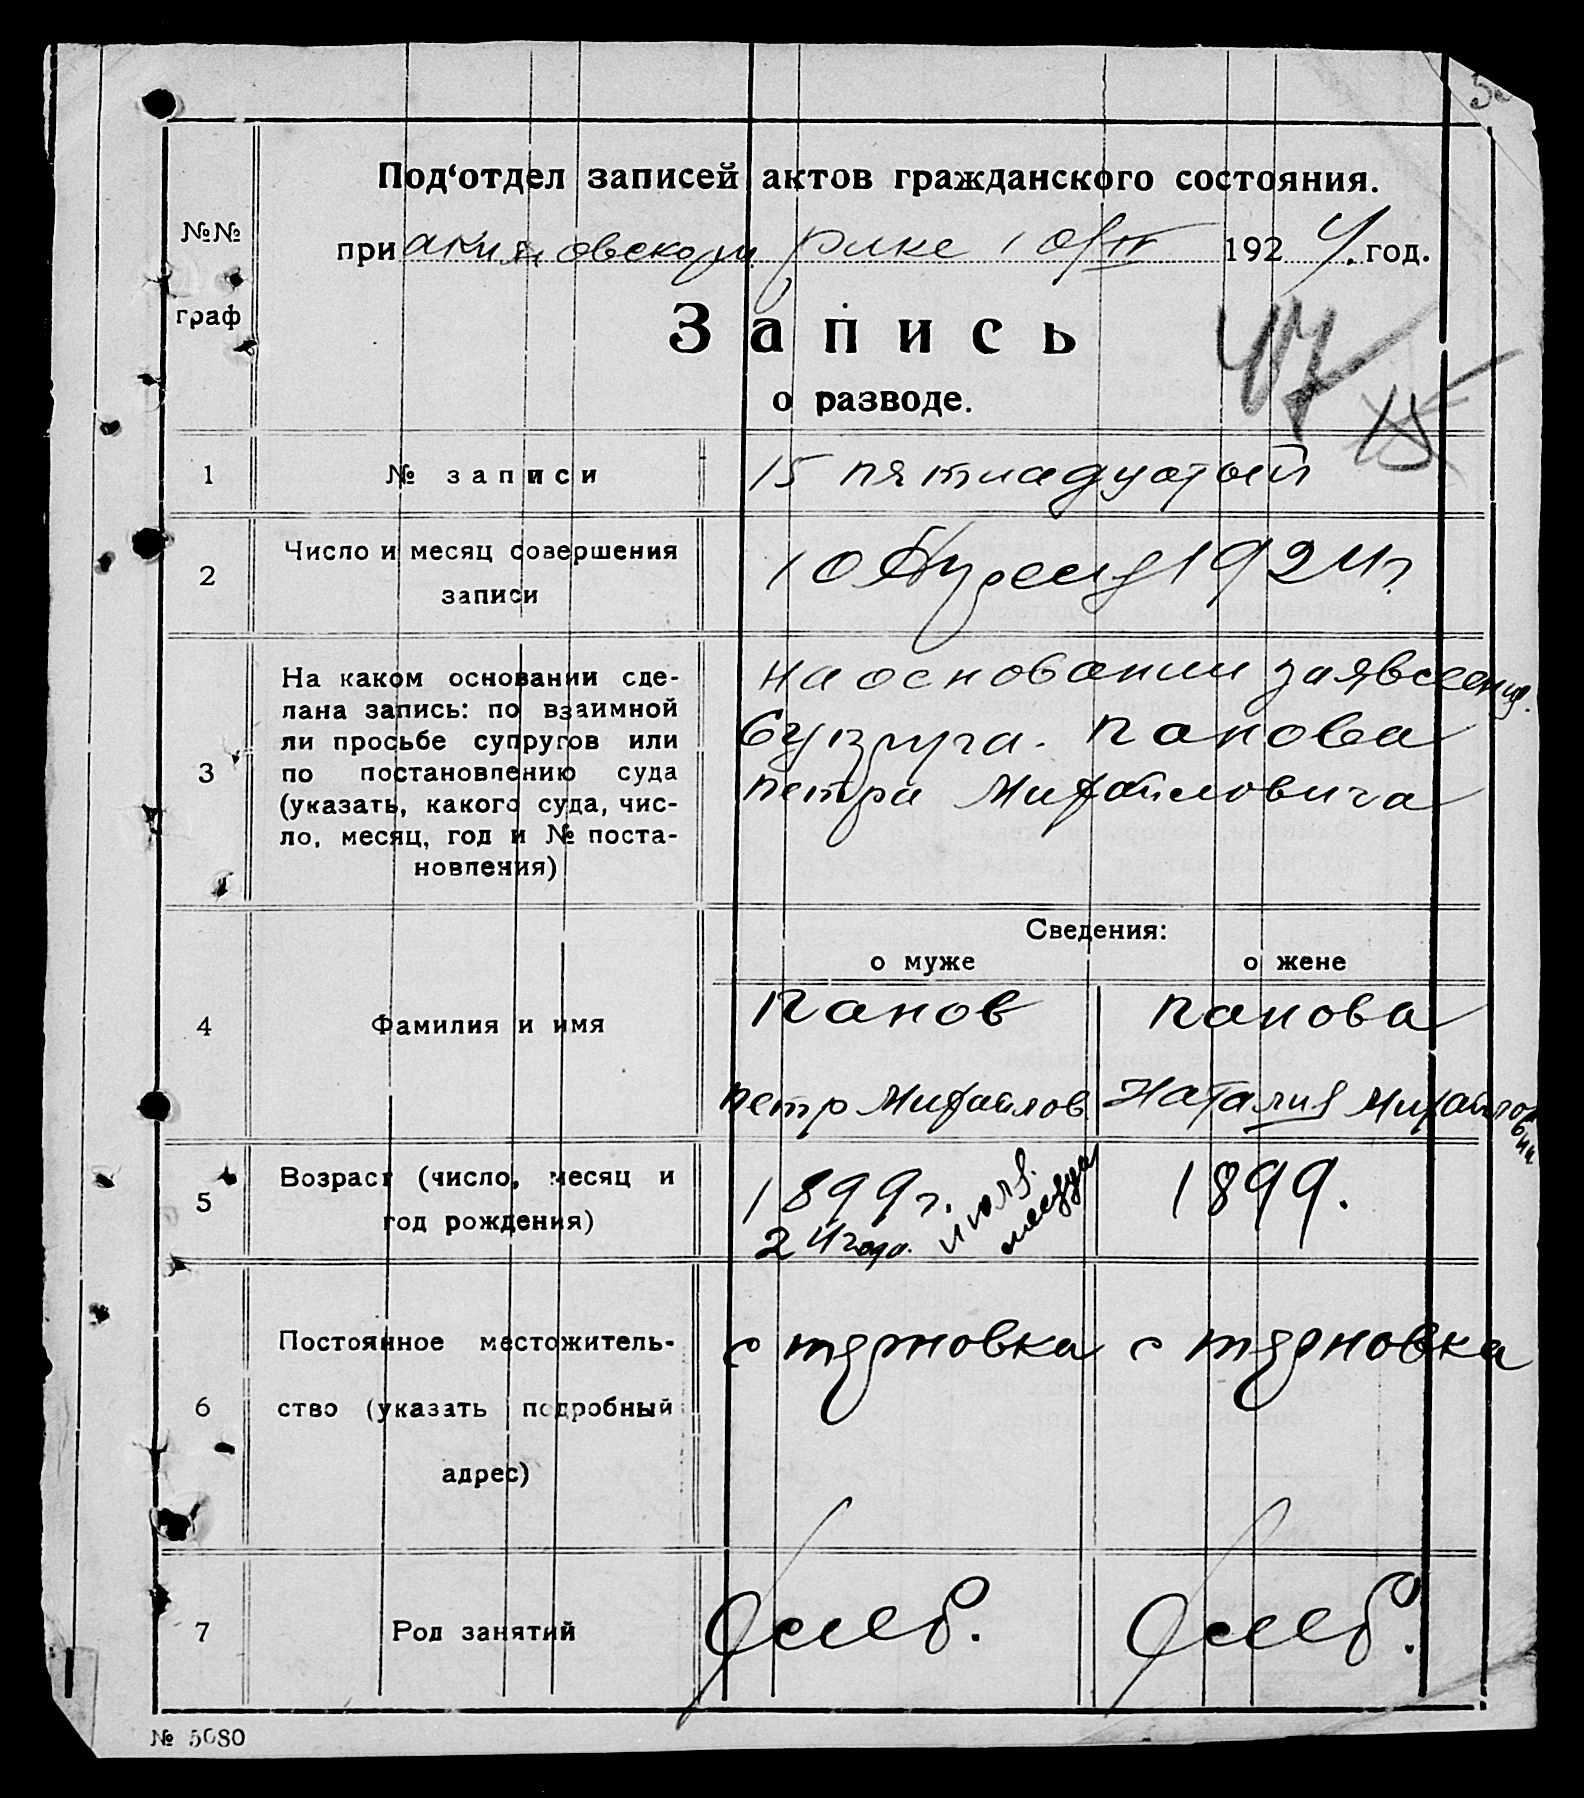 Под‘отдел записей актов гражданского состояния.
№№
граф
при акимовском рике 10/IV 1924 год.
Запись
о разводе.
47
15
1 № записи 15 пятнадцатый
2 Число и месяц совершения
записи
10 1924 г.
3 На каком основании сде-
лана запись: по взаимной
ли просьбе супругов или
по постановлению суда
(указать, какого суда, чис-
ло, месяц, год и № поста-
новления)
на основании заявления
супруга. Панова
Петра Михайловича
Сведения:
о муже о жене
4 Фамилия и имя
Панов Панова
Петр Михайлов. Наталия Михайловна
5 Возраст (число, месяц и
год рождения)
1899 г. июля месяца 1899.
24 года.
6 Постоянное местожитель-
ство (указать подробный
адрес)
с терновка с терновка
7 Род занятий хлеб. хлеб.
№ 5080